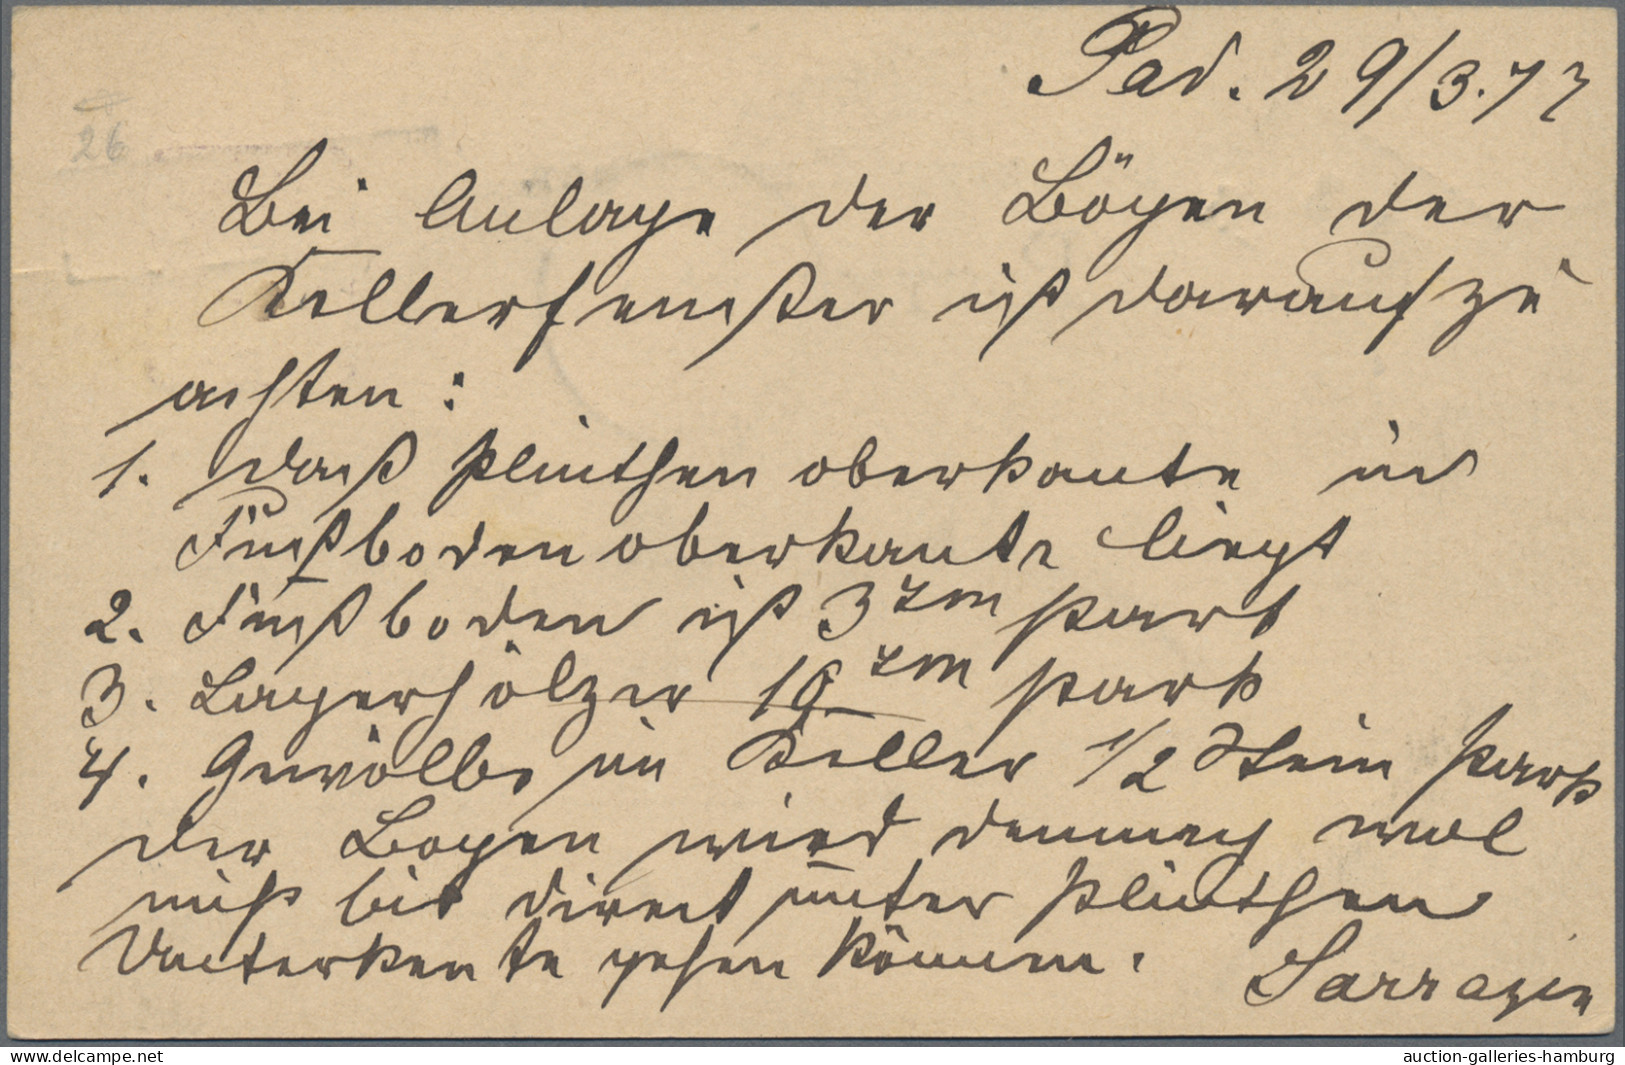 Pad. 29/3.77
26
Bei Anlage der Bögen der
Kellerfenster ist darauf zu
achten:
1. daß Plinthen oberkante in
Fußboden oberkante liegt
2. Fußboden ist 3 zm stark
3. Lagerhölzer 10 zm stark
4. Gewölbe im Keller 1/2 Stein stark
der Bogen wird demnach wol
nicht bis direct unter Plinthen
Unterkante gehen können.
Sarrazin
www.delcampe.net
auction-galleries-hamburg